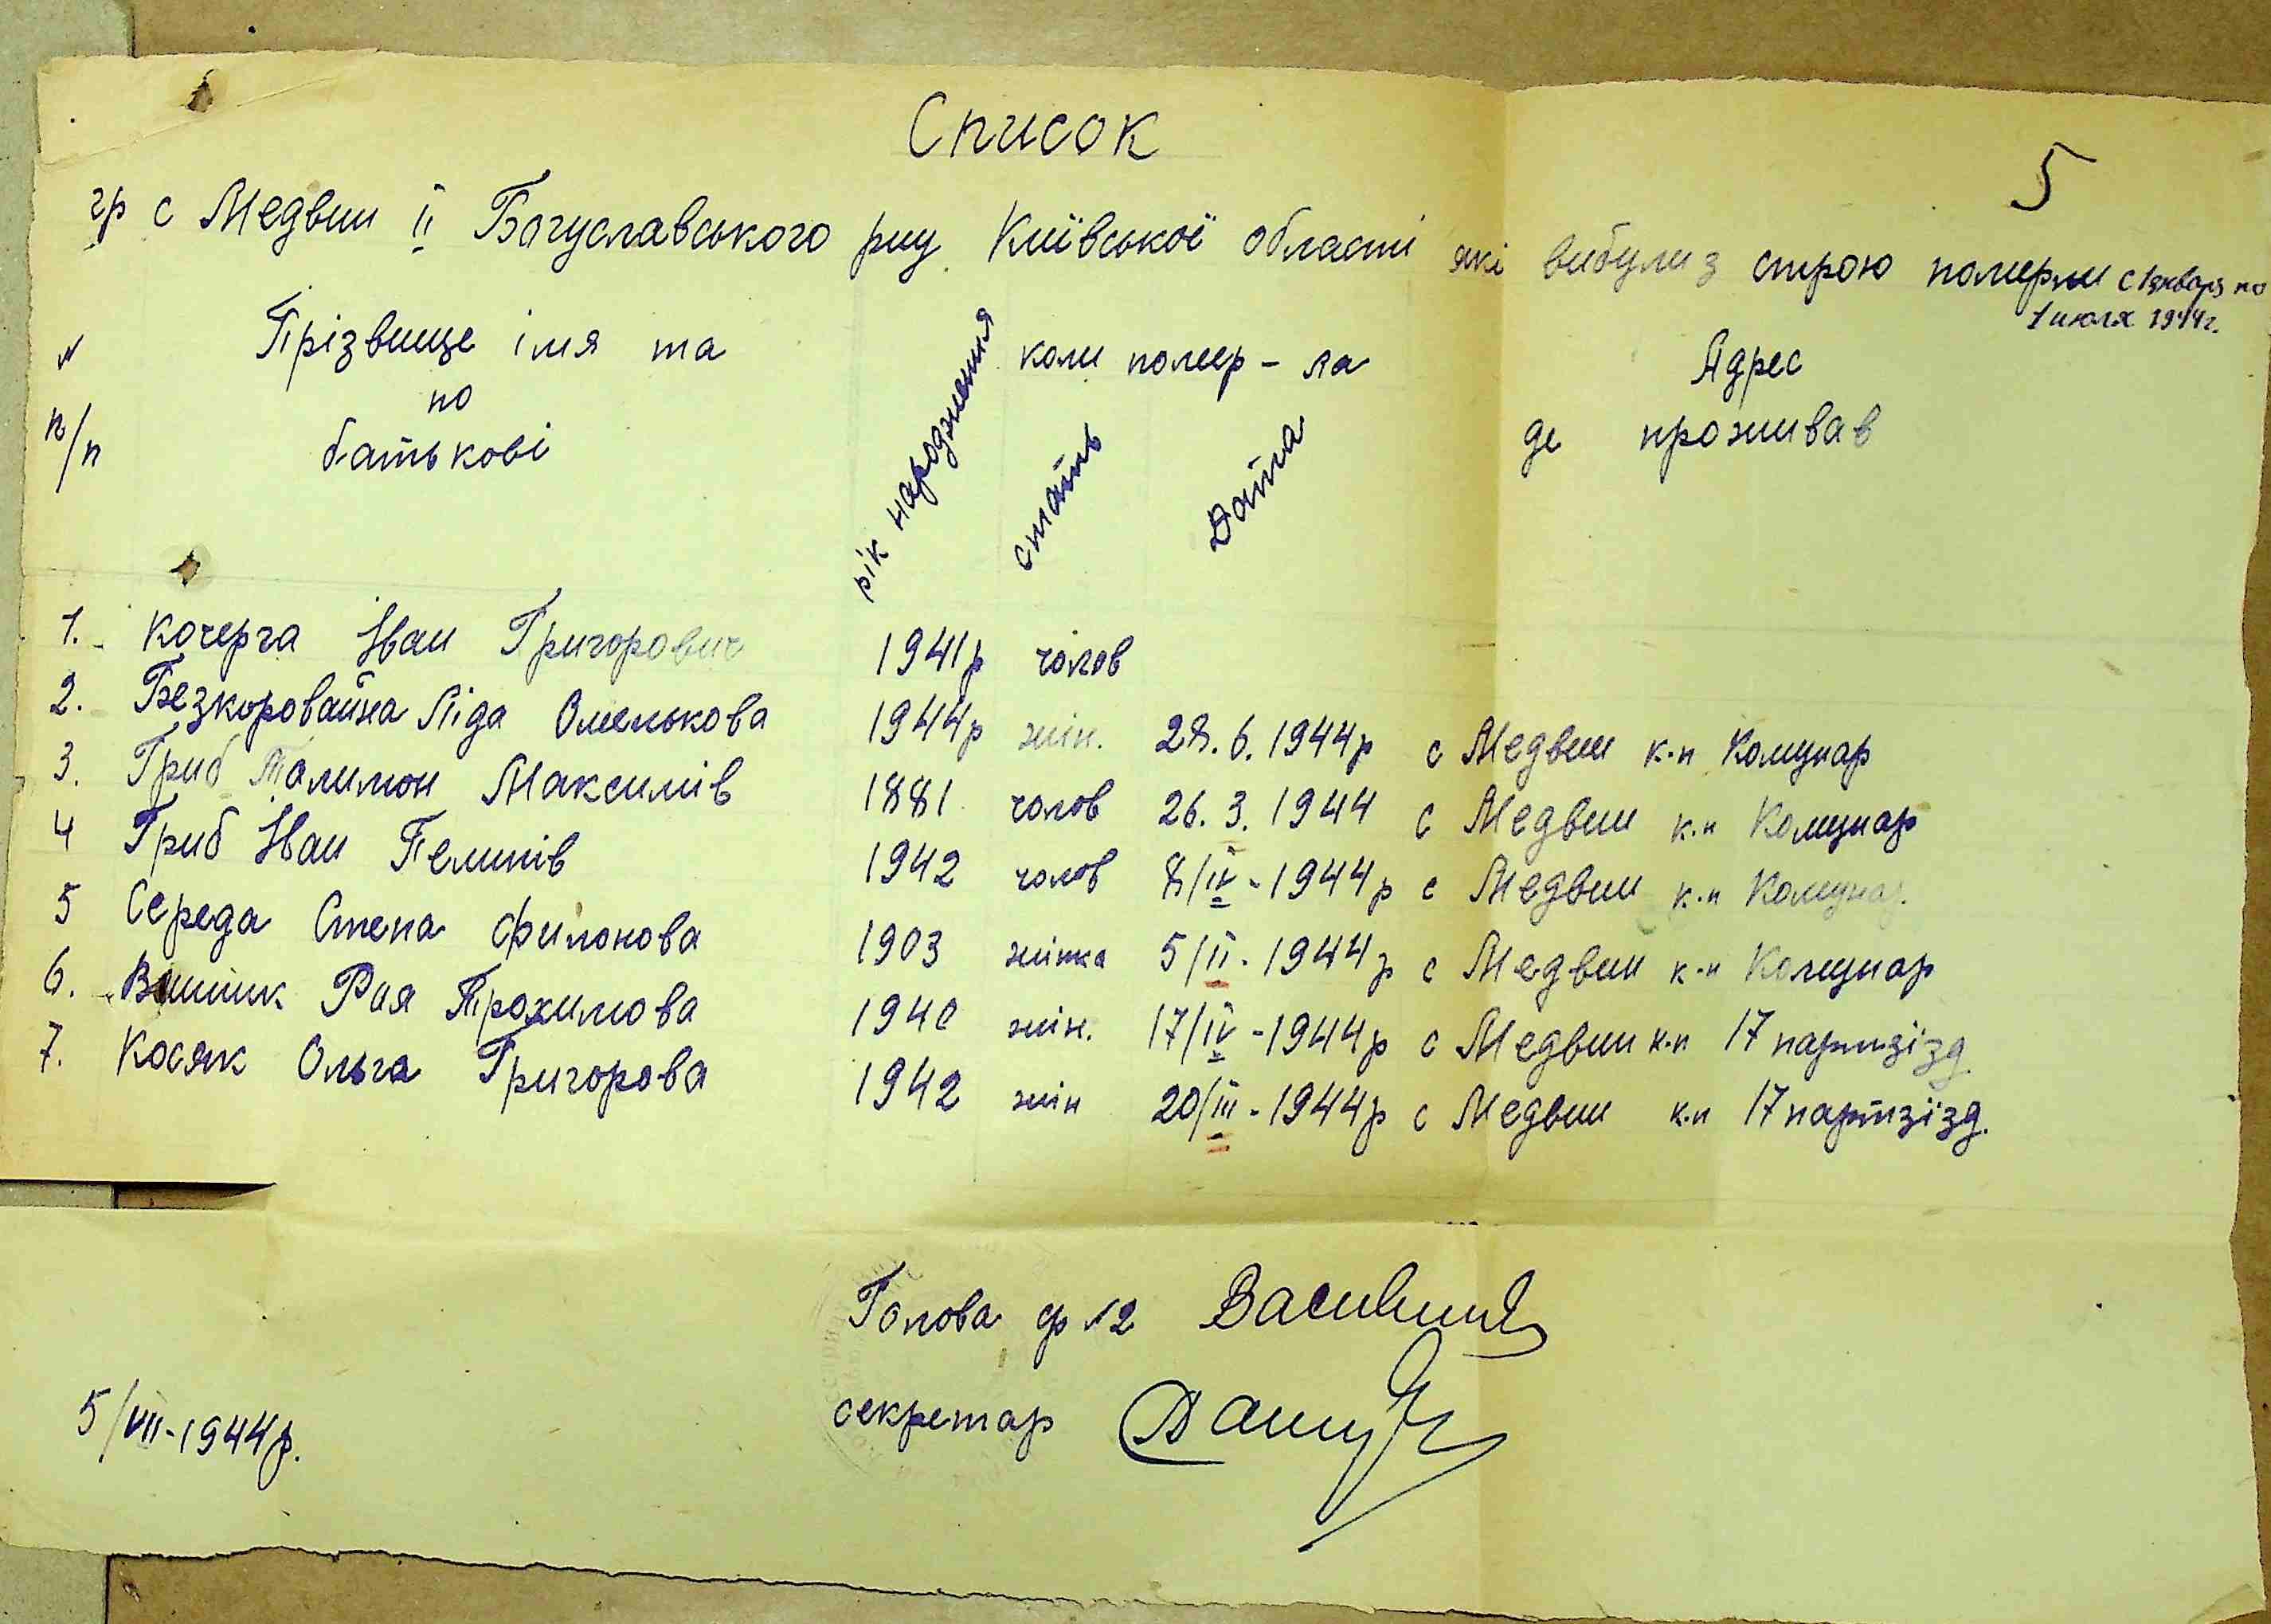 Список
5
гр с Медвин ІІ Богуславського рну Київської области які вибули з строю померли с 1 января по
1 июля 1944г.
№ Прізвище імя та рік народження коли помер - ла Адрес
п/п по батькові стать Дата де проживав
1. Кочерга Іван Григорович 1941р чолов
2. Безкоровайна Ліда Омелькова 1944р жін. 28.6.1944р с Медвин к-п Комунар
3. Гриб Толимон Максимів 1881 чолов 26.3.1944 с Медвин к-п Комунар
4 Гриб Іван Пелипів 1942 чолов 8/IV-1944р с Медвин к-п Комунар.
5 Середа Степа Филонова 1903 жінка 5/ІІ-1944р с Медвин к-п Комунар
6. Рая Трохимова 1940 жін. 17/IV-1944р с Медвин к-п 17 партзїзд
7. Косяк Ольга Григорова 1942 жін 20/ІІІ-1944р с Медвин к-п 17 партзїзд.
Голова
секретар
5/VII-1944р.